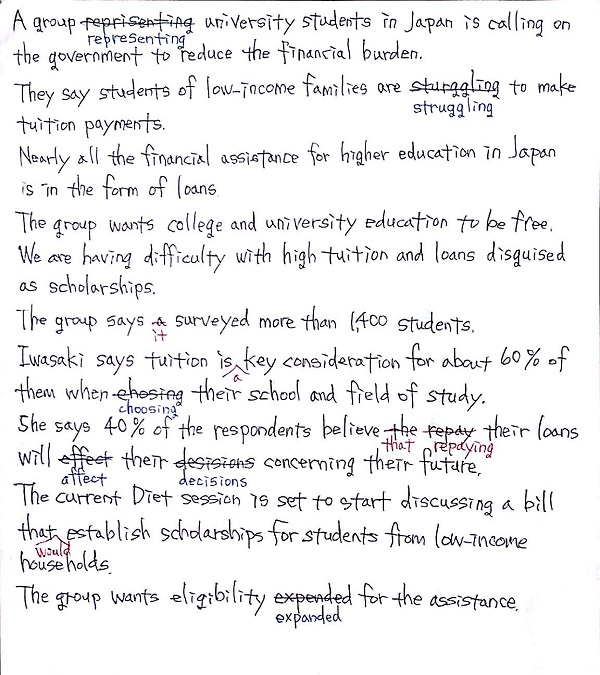 A group reprisenting university students in Japan is calling on
representing
the government to reduce the financial burden.
They say students of low-income families are sturggling to make
struggling
tuition payments.
Nearly all the financial assistance for higher education in Japan
is in the form of loans.
The group wants college and university education to be free.
We are having difficulty with high tuition and loans disguised
as scholarships.
The group says a surveyed more than 1,400 students.
it
Iwasaki says tuition is key consideration for about 60% of
a
them when chosing their school and field of study.
choosing
She says 40% of the respondents believe the repay their loans
that repaying
will effect their desisions concerning their future.
affect decisions
The current Diet session is set to start discussing a bill
that establish scholarships for students from low-income
would
households.
The group wants eligibility expended for the assistance.
expanded